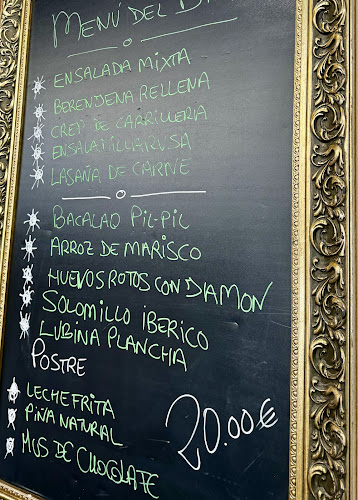 MENÚ DEL D
ENSALADA MIXTA
BERENJENA RELLENA
CREP DE CARRILLERIA
ENSALADILLA RUSA
LASAÑA DE CARNE
BACALAO PIL-PIL
ARROZ DE MARISCO
HUEVOS ROTOS CON DJAMON
SOLOMILLO IBERICO
LUBINA PLANCHA
POSTRE
LECHE FRITA
PIÑA NATURAL
MUS DE CHOCOLATE
20.00€